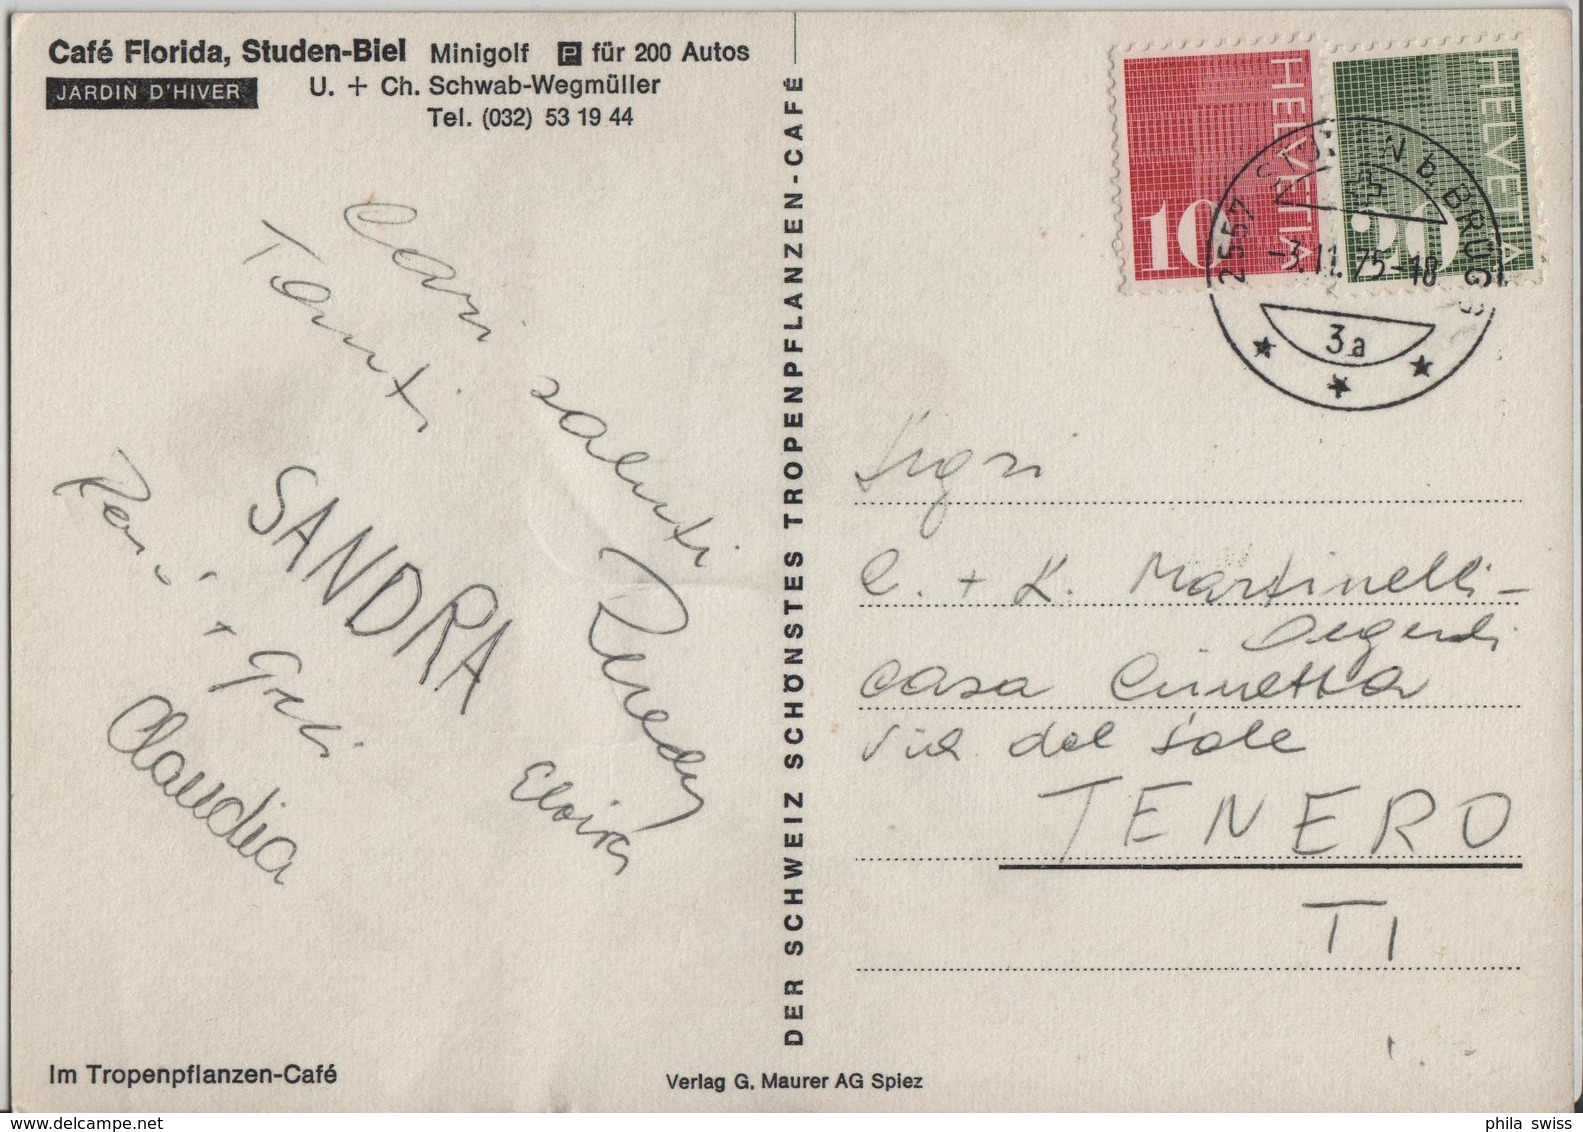 Café Florida, Studen-Biel Minigolf P für 200 Autos
JARDIN D'HIVER U. + Ch. Schwab-Wegmüller
Tel. (032) 53 19 44
Tanti
cari
saluti
SANDRA
Ruedy
+
Claudia
Elvira
Im Tropenpflanzen-Café
DER SCHWEIZ SCHÖNSTES TROPENPFLANZEN-CAFÉ
Verlag G. Maurer AG Spiez
HELVETIA
10
HELVETIA
20
2557 STUDEN b. BRÜGG
-3.11.75-18
3a
Sigri
C. + K. Martinelli-
Casa
Via del Sole
TENERO
TI
phila swiss